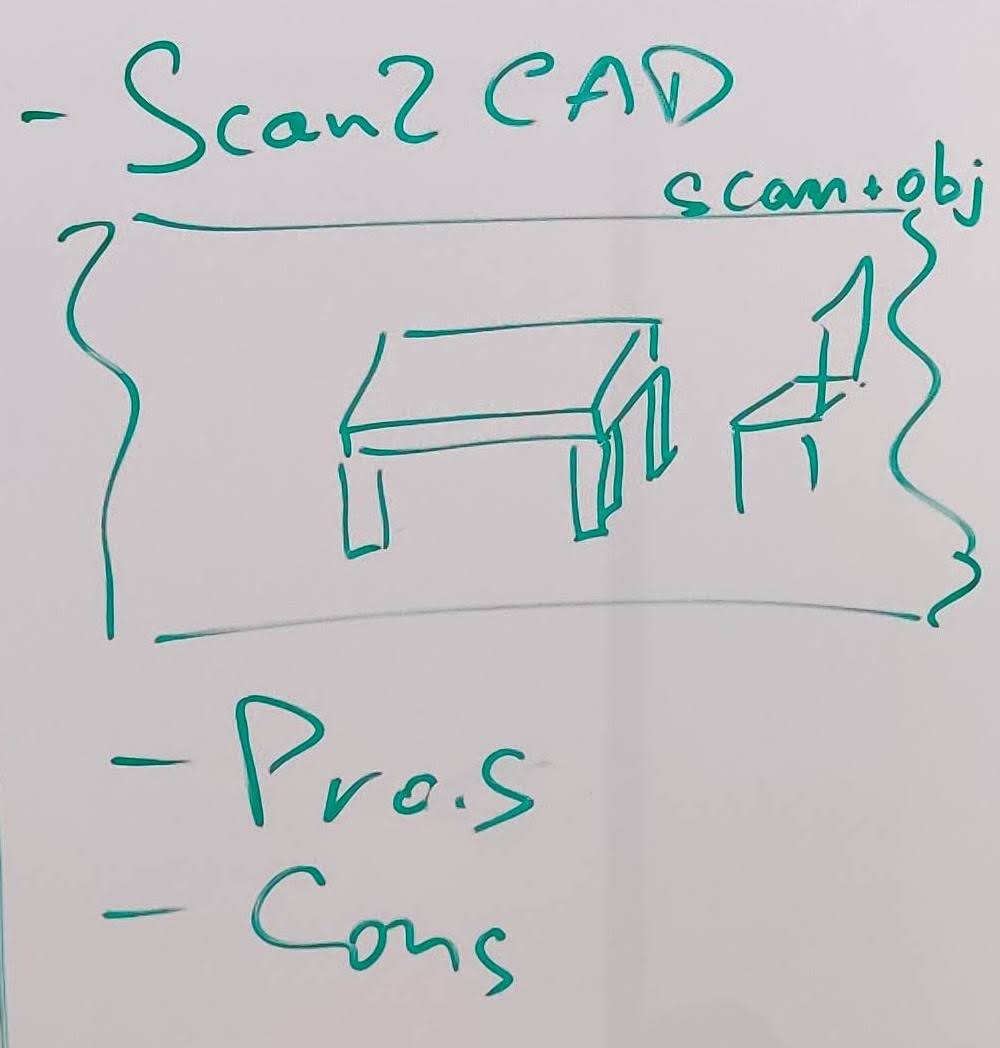 - Scan2CAD
scan + obj
- Pros
- Cons